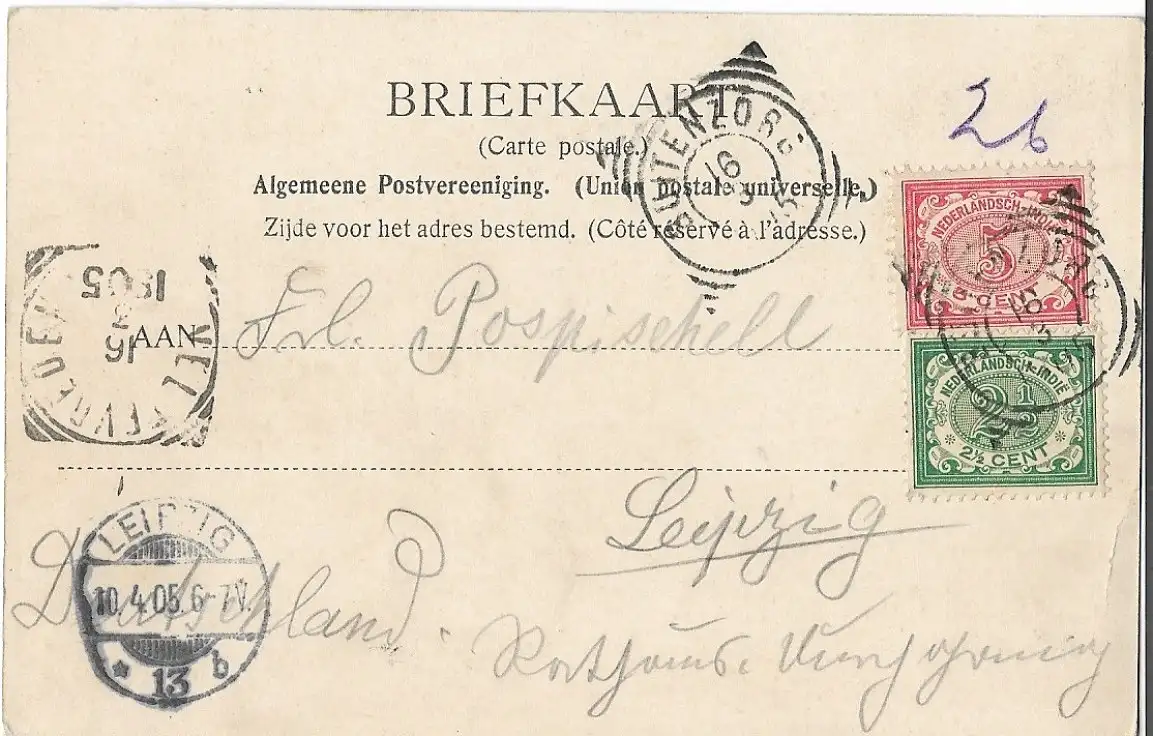 BRIEFKAART
(Carte postale.)
Algemeene Postvereeniging. (Union postale universelle.)
Zijde voor het adres bestemd. (Côté réservé à l'adresse.)
26
BUITENZORG
16 3
NEDERLANDSCH-INDIË
5
5 CENT
NEDERLANDSCH-INDIË
2 1/2
2½ CENT
WELTEVREDEN
16 3
1905
AAN Frl. Pospischell
Leipzig
Deutschland.
Rathaus. Durchgang
LEIPZIG
10.4.05.6-7V.
* 13 b